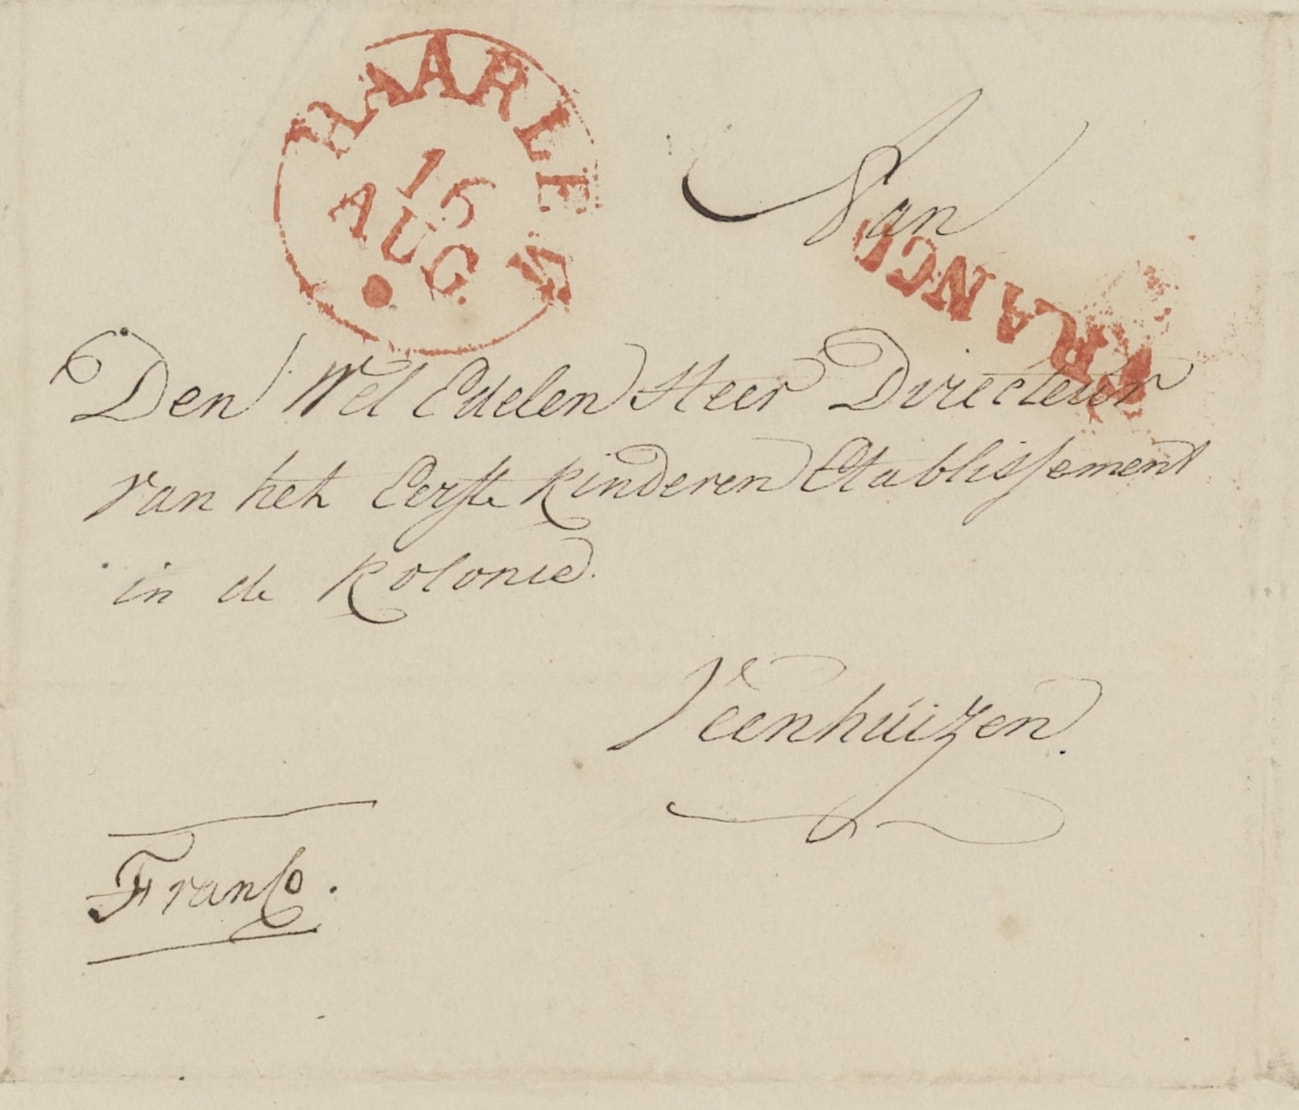 HAARLEM
16
AUG.
Van
FRANCO
Den Wel Edelen Heer Directeur
van het Eerste Kinderen Etablissement
in de Kolonie.
Veenhuizen.
Franco.